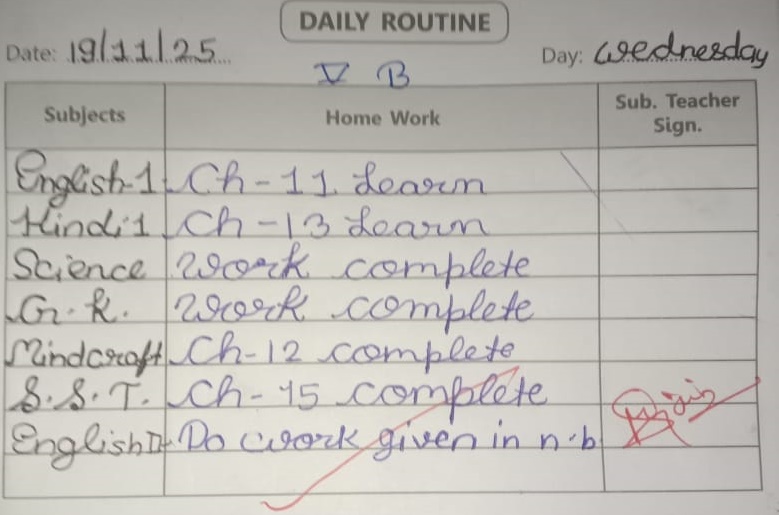 DAILY ROUTINE
Date: 19/11/25 Day: Wednesday
V B
Subjects Home Work Sub. Teacher Sign.
English-1 Ch-11. Learn
Hindi-1 Ch-13 Learn
Science Work complete
G.K. Work complete
Mindcraft Ch-12 complete
S.S.T. Ch-15 complete
English II Do work given in n.b